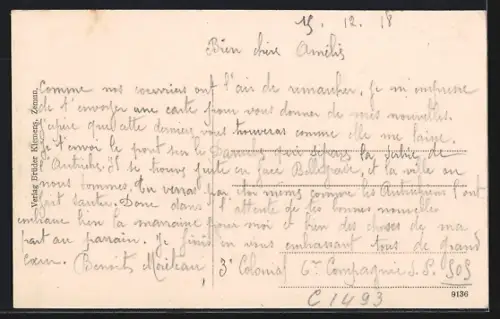 15. 12. 18
Bien chère Amélie
Comme nos courriers ont l'air de remarcher, je m'empresse
de t'envoyer une carte pour vous donner de mes nouvelles.
J'espère que cette dernière vous trouvera comme elle me laisse.
Je t'envoi le pont sur le Danube qui sépare la Serbie de
l'Autriche. Il se trouve juste en face Belgrade, et la ville où
nous sommes. Tu verras par toi même comme les Autrichiens l'ont
fait sauter. Donc dans l'attente de tes bonnes nouvelles
embrasse bien la marraine pour moi et bien des choses de ma
part au parrain. Je finis en vous embrassant tous de grand
cœur. Benoit
3e Colonial 6me Compagnie S.P. 505
C1493
9136
Verlag Brüder Klemens, Zemun.